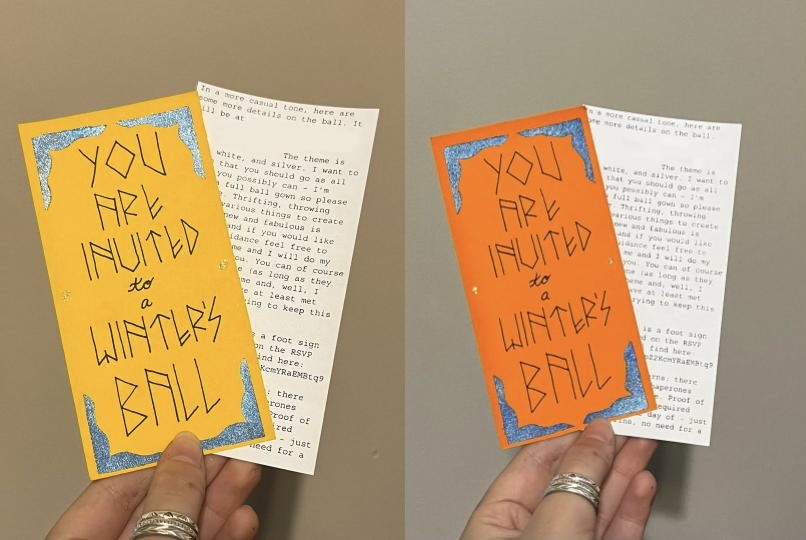 YOU
ARE
INVITED
to
a
WINTER'S
BALL
In a more casual tone, here are
some more details on the ball. It
ill be at
The theme is
white, and silver. I want to
that you should go as all
you possibly can - I'm
full ball gown so please
. Thrifting, throwing
various things to create
new and fabulous is
and if you would like
idance feel free to
me and I will do my
you. You can of course
e (as long as they
me and, well, I
e at least met
rying to keep this
s a foot sign
on the RSVP
ind here:
KcmYRaEMBtq9
: there
perones
Proof of
ired
- just
need for a
YOU
ARE
INVITED
to
a
WINTER'S
BALL
n a more casual tone, here are
me more details on the ball.
The theme is
white, and silver. I want to
that you should go as all
you possibly can - I'm
full ball gown so please
. Thrifting, throwing
various things to create
new and fabulous is
and if you would like
idance feel free to
me and I will do my
you. You can of course
e (as long as they
me and, well, I
ave at least met
rying to keep this
is a foot sign
d on the RSVP
find here:
KcmYRaEMBtq9
rns: there
aperones
e. Proof of
equired
day of - just
no need for a